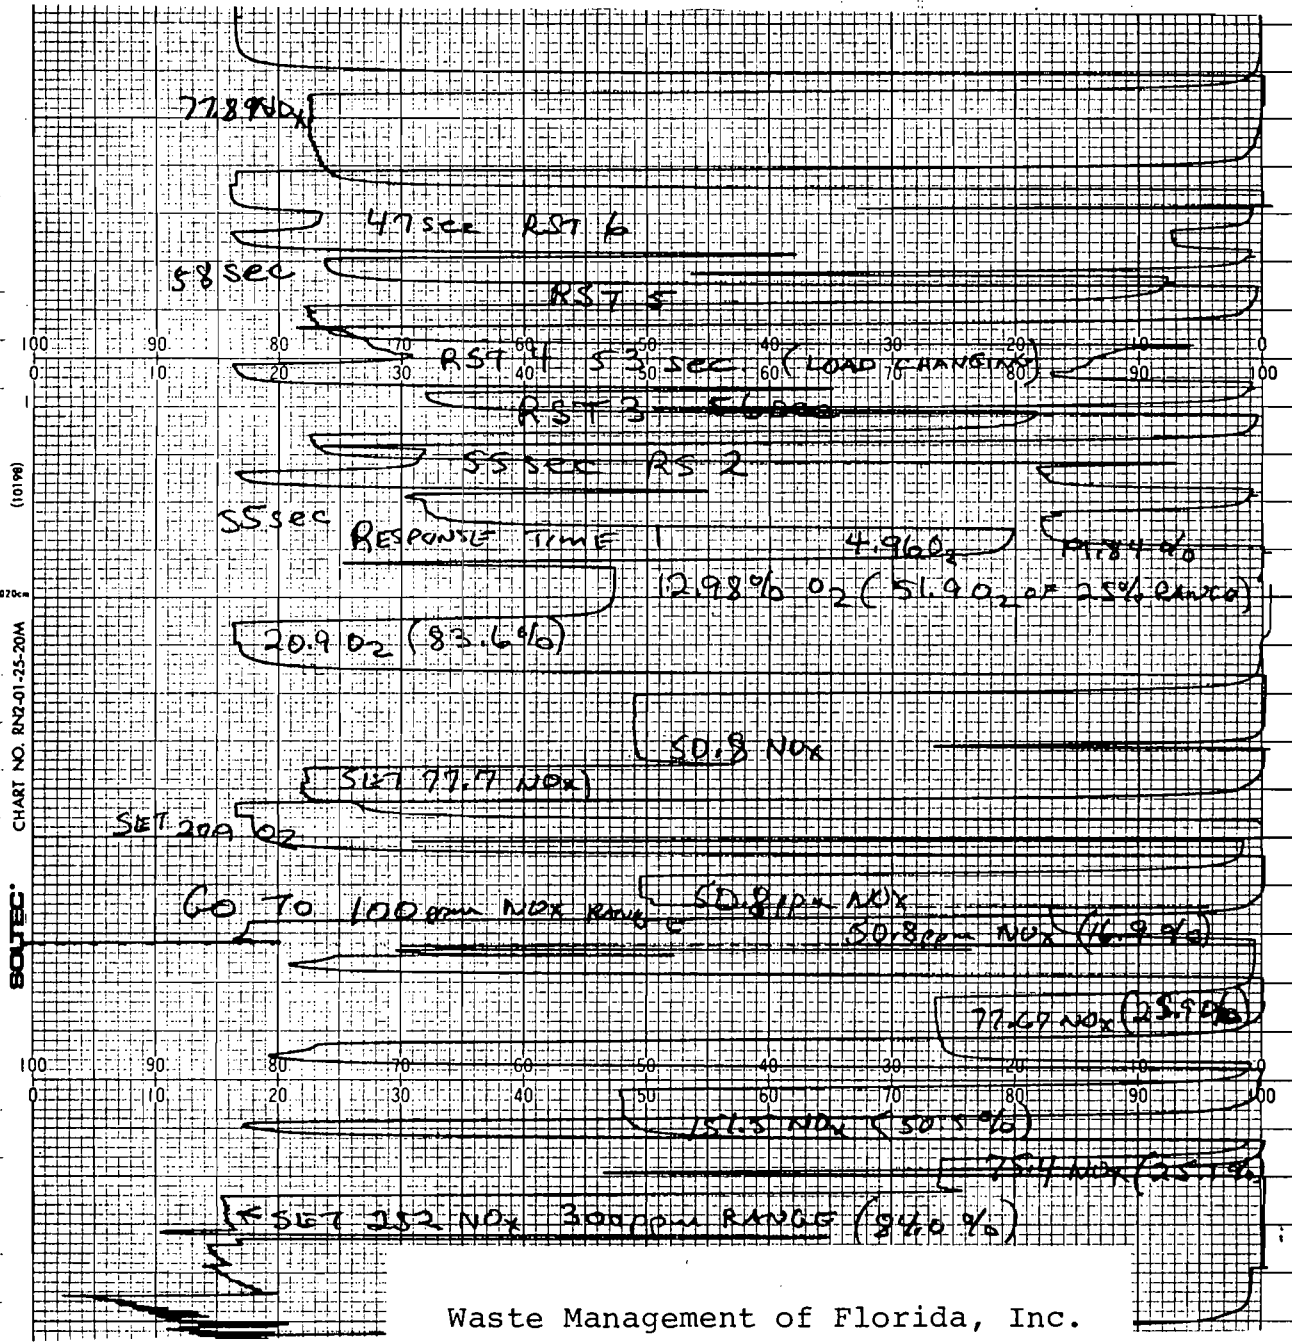 77.89 NOx
47 sec RST 6
58 sec
RST 5
100 90 80 70 60 50 40 30 20 10 0
RST 4 53 sec (LOAD CHANGING)
0 10 20 30 40 50 60 70 80 90 100
RST 3 56 sec
55 sec RS 2
55 sec
RESPONSE TIME 1 4.96 O2 19.84 %
12.98% O2 (51.9 O2 OF 25% RANGE)
20.9 O2 (83.6%)
50.8 NOx
SET 77.7 NOx)
SET 20.9 O2
GO TO 100 ppm NOX RANGE 50.8 ppm NOX
50.8 ppm NOx (16.9 %)
77.67 NOx (25.9%)
100 90 80 70 60 50 40 30 20 10 0
0 10 20 30 40 50 60 70 80 90 100
151.5 NOx (50.5 %)
75.4 NOx (25.1%
← SET 252 NOx 300 ppm RANGE (84.0 %)
(10198)
020cm
CHART NO. RN2-01-25-20M
SOLTEC
Waste Management of Florida, Inc.